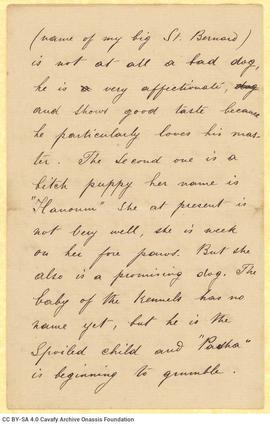 (name of my big St. Bernard)
is not at all a bad dog,
he is a very affectionate, dog
and shows good taste because
he particularly loves his mas-
ter. The second one is a
bitch puppy her name is
"Hanoum" She at present is
not very well, she is week
on her fore paws. But she
also is a promising dog. The
baby of the Kennels has no
name yet, but he is the
Spoiled child and "Pasha"
is beginning to grumble.
CC BY-SA 4.0 Cavafy Archive Onassis Foundation